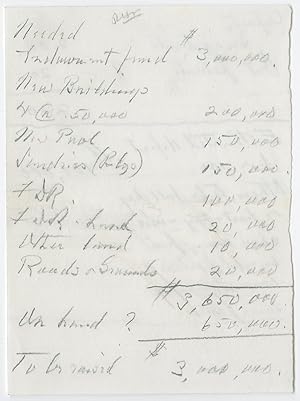 Needed
Endowment fund $ 3,000,000.
New Buildings
4 @ 50,000 200,000
New Pool 150,000
Sundries (Bldgs) 150,000.
FDR. 100,000
FDR - land 20,000
Other land 10,000
Roads & Grounds 20,000
$ 3,650,000.
On hand ? 650,000.
To be raised $ 3,000,000.